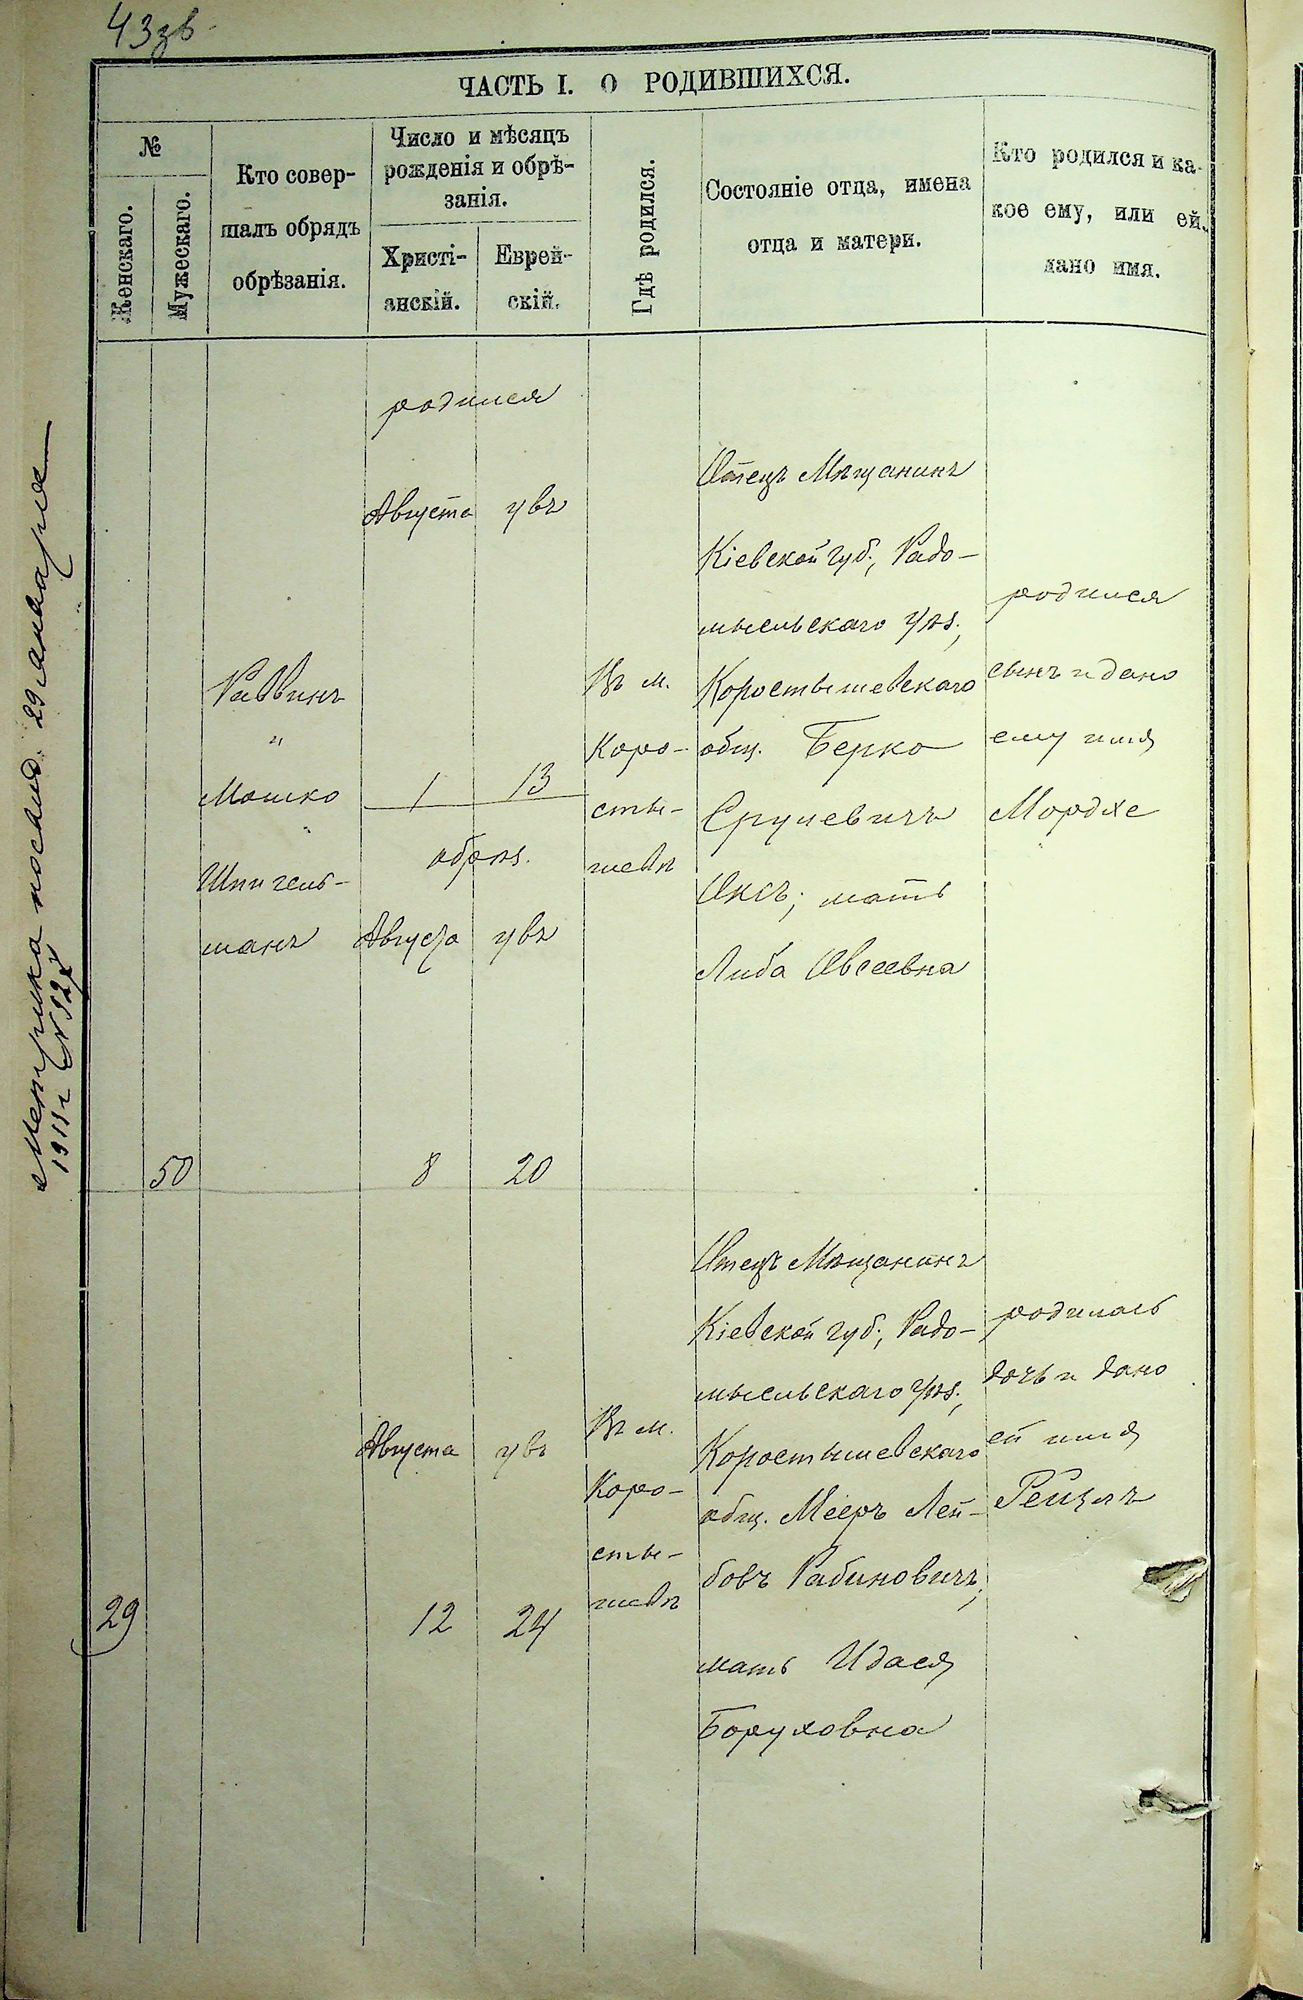 43зв
ЧАСТЬ I. О РОДИВШИХСЯ.
№
Женскаго.
Мужескаго.
Кто совер-
шалъ обрядъ
обрѣзанія.
Число и мѣсяцъ
рожденія и обрѣ-
занія.
Христі-
анскій.
Еврей-
скій.
Гдѣ родился.
Состояніе отца, имена
отца и матери.
Кто родился и ка-
кое ему, или ей,
дано имя.
Метрика послана 29 января
1911 г. №127
50
Раввинъ
и
Мошко
Шпигель-
манъ
родился
Августа увъ
1 13
обрѣз.
Августа увъ
8 20
Въ м.
Коро-
сты-
шевѣ
Отецъ Мѣщанинъ
Кіевской губ., Радо-
мысльскаго уѣз.,
Коростышевскаго
общ. Берко
Срулевичъ
Оксъ; мать
Либа Овсеевна
родился
сынъ и дано
ему имя
Мордхе
29
Августа увъ
12 24
Въ м.
Коро-
сты-
шевѣ
Отецъ Мѣщанинъ
Кіевской губ., Радо-
мысльскаго уѣз.,
Коростышевскаго
общ. Мееръ Лей-
бовъ Рабиновичъ;
мать Идася
Боруховна
родилась
дочь и дано
ей имя
Рейзлъ